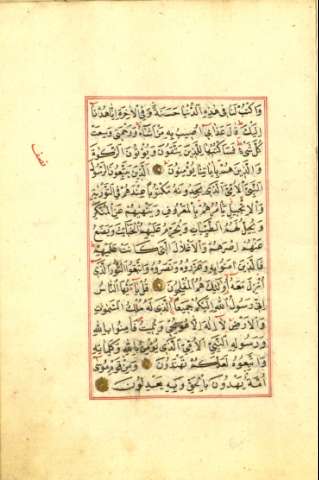 وَاكْتُبْ لَنَا فِي هَذِهِ الدُّنْيَا حَسَنَةً وَفِي الْآخِرَةِ إِنَّا هُدْنَا
إِلَيْكَ قَالَ عَذَابِي أُصِيبُ بِهِ مَنْ أَشَاءُ وَرَحْمَتِي وَسِعَتْ
كُلَّ شَيْءٍ فَسَأَكْتُبُهَا لِلَّذِينَ يَتَّقُونَ وَيُؤْتُونَ الزَّكَوةَ
وَالَّذِينَ هُمْ بِآيَاتِنَا يُؤْمِنُونَ الَّذِينَ يَتَّبِعُونَ الرَّسُولَ
النَّبِيَّ الْأُمِّيَّ الَّذِي يَجِدُونَهُ مَكْتُوبًا عِنْدَهُمْ فِي التَّوْرَيةِ
وَالْإِنْجِيلِ يَأْمُرُهُمْ بِالْمَعْرُوفِ وَيَنْهَيهُمْ عَنِ الْمُنْكَرِ
وَيُحِلُّ لَهُمُ الطَّيِّبَاتِ وَيُحَرِّمُ عَلَيْهِمُ الْخَبَائِثَ وَيَضَعُ
عَنْهُمْ إِصْرَهُمْ وَالْأَغْلَالَ الَّتِي كَانَتْ عَلَيْهِمْ
فَالَّذِينَ آمَنُوا بِهِ وَعَزَّرُوهُ وَنَصَرُوهُ وَاتَّبَعُوا النُّورَ الَّذِي
أُنْزِلَ مَعَهُ أُولَئِكَ هُمُ الْمُفْلِحُونَ قُلْ يَا أَيُّهَا النَّاسُ
إِنِّي رَسُولُ اللَّهِ إِلَيْكُمْ جَمِيعًا الَّذِي لَهُ مُلْكُ السَّمَوَاتِ
وَالْأَرْضِ لَا إِلَهَ إِلَّا هُوَ يُحْيِي وَيُمِيتُ فَآمِنُوا بِاللَّهِ
وَرَسُولِهِ النَّبِيِّ الْأُمِّيِّ الَّذِي يُؤْمِنُ بِاللَّهِ وَكَلِمَاتِهِ
وَاتَّبِعُوهُ لَعَلَّكُمْ تَهْتَدُونَ وَمِنْ قَوْمِ مُوسَى
أُمَّةٌ يَهْدُونَ بِالْحَقِّ وَبِهِ يَعْدِلُونَ
نصف